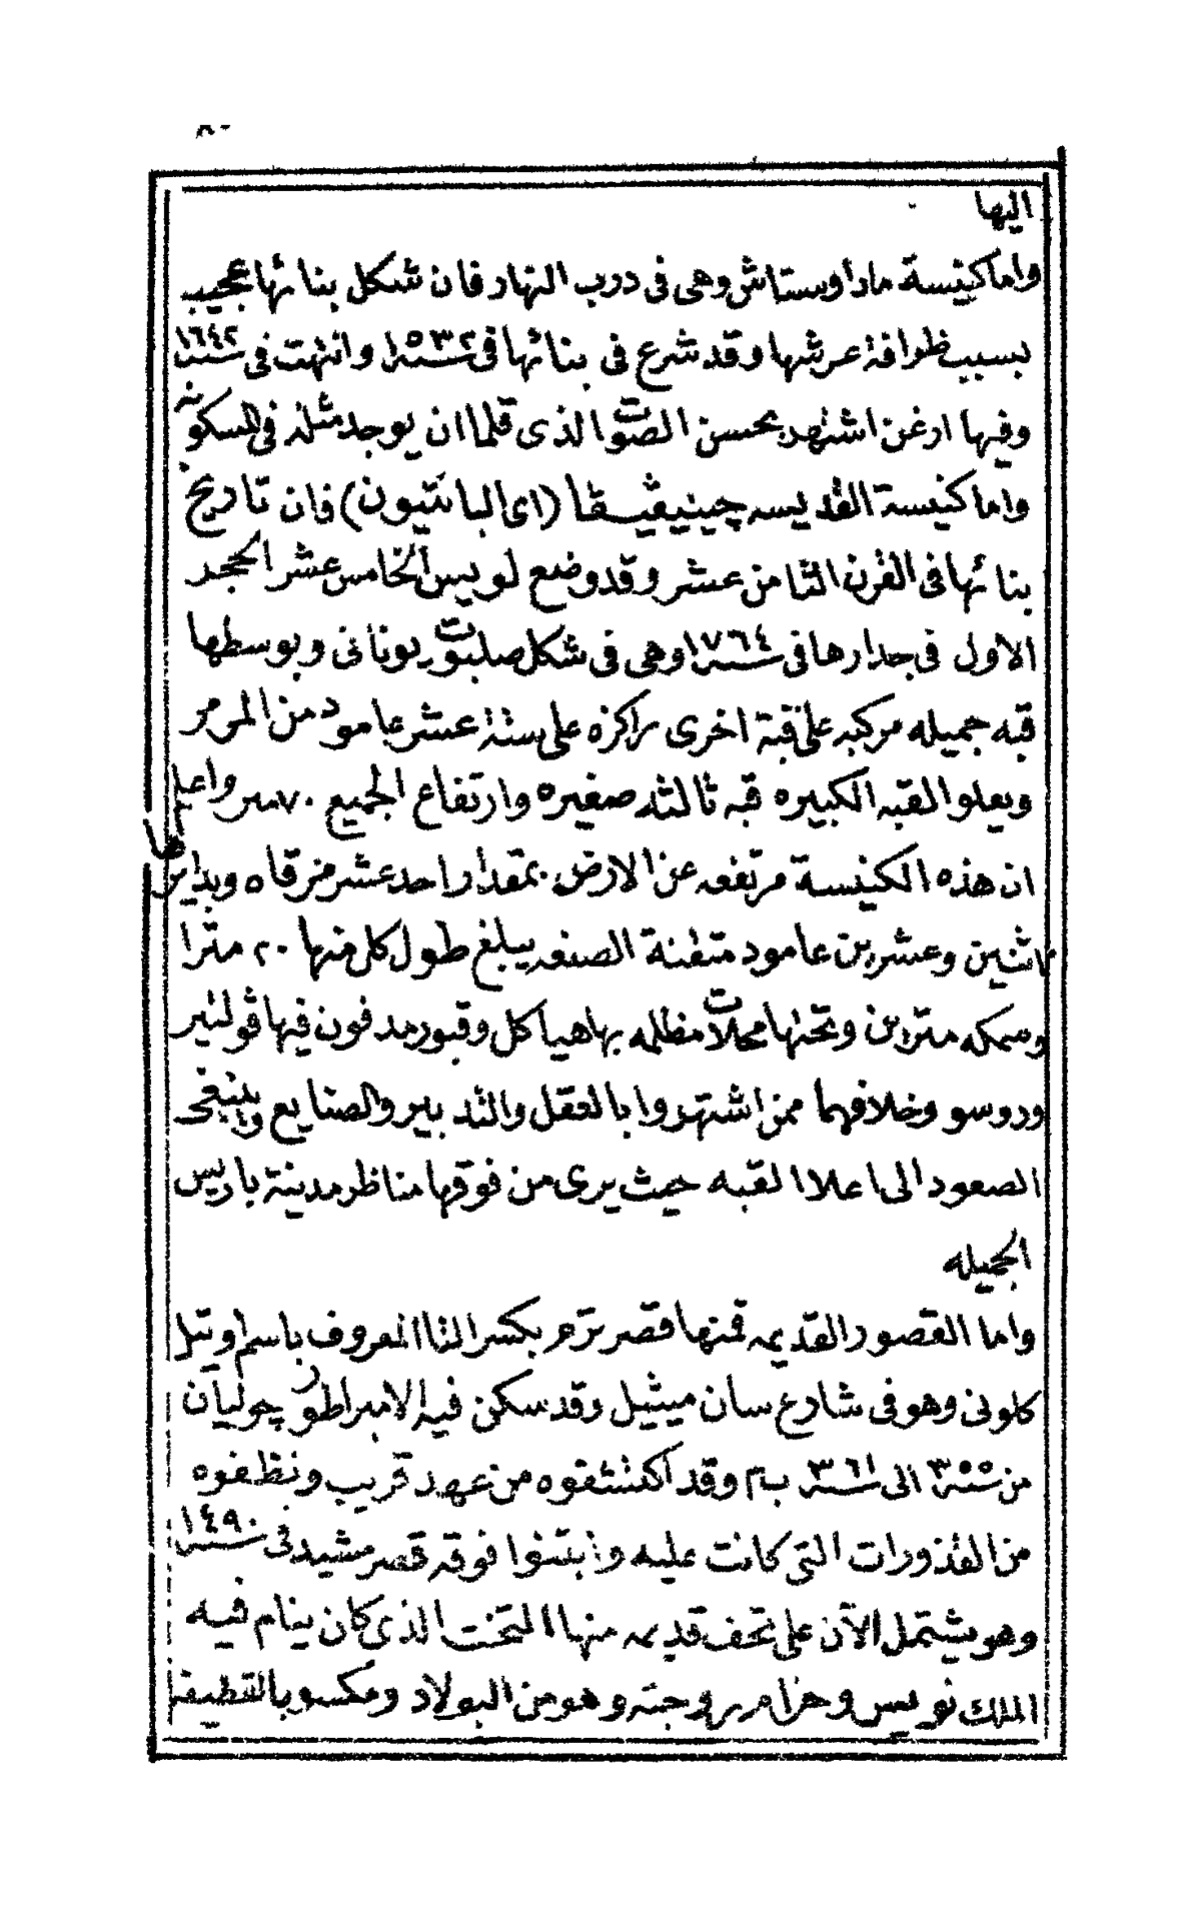 اليها
واما كنيسة مار أوستاش وهي في درب النهار فان شكل بنائها عجيب
بسبب ظرافة عرشها وقد شرع في بنائها في سنة ١٥٣٢ وانتهت في سنة ١٦٤٢
وفيها ارغن اشتهر بحسن الصوت الذي قلما ان يوجد مثله في المسكونه
واما كنيسة القديسه چينيڤيڤا (اي البانتيون) فان تاريخ
بنائها في القرن الثامن عشر وقد وضع لويس الخامس عشر الحجر
الاول في جدارها في سنة ١٧٦٤ وهي في شكل صلبوت يوناني وبوسطها
قبه جميله مركبه على قبة اخرى مراكزه على ستة عشر عامود من المرمر
ويعلو القبه الكبيره قبه ثالثه صغيره وارتفاع الجميع ٧٠ متر واعلم
ان هذه الكنيسة مرتفعه عن الارض بمقدار احد عشر مرقاه وبدايرها
اثنين وعشرين عامود متقنة الصنعه يبلغ طول كل منها ٢٠ مترا
وسمكه مترين وتحتها محلات مظلمه بها هياكل وقبور مدفون فيها ڤولتير
وروسو وخلافهما ممن اشتهروا بالعقل والتدبير والصنايع وينبغي
الصعود الى اعلا القبه حيث يرى من فوقها مناظر مدينة باريس
الجميله
واما القصور القديمه فمنها قصر ترم بكسر التا المعروف باسم اوتل
كلوني وهو في شارع سان ميشيل وقد سكن فيه الامبراطور چوليان
من سنة ٣٥٥ الى سنة ٣٦١ ب م وقد اكتشفوه من عهد قريب ونظفوه
من القذورات التي كانت عليه وابتنوا فوقه قصر مشيد في سنة ١٤٩٠
وهو يشتمل الآن على تحف قديمه منها التخت الذي كان ينام فيه
الملك لويس وحزام زوجته وهو من البولاد ومكسو بالقطيفه